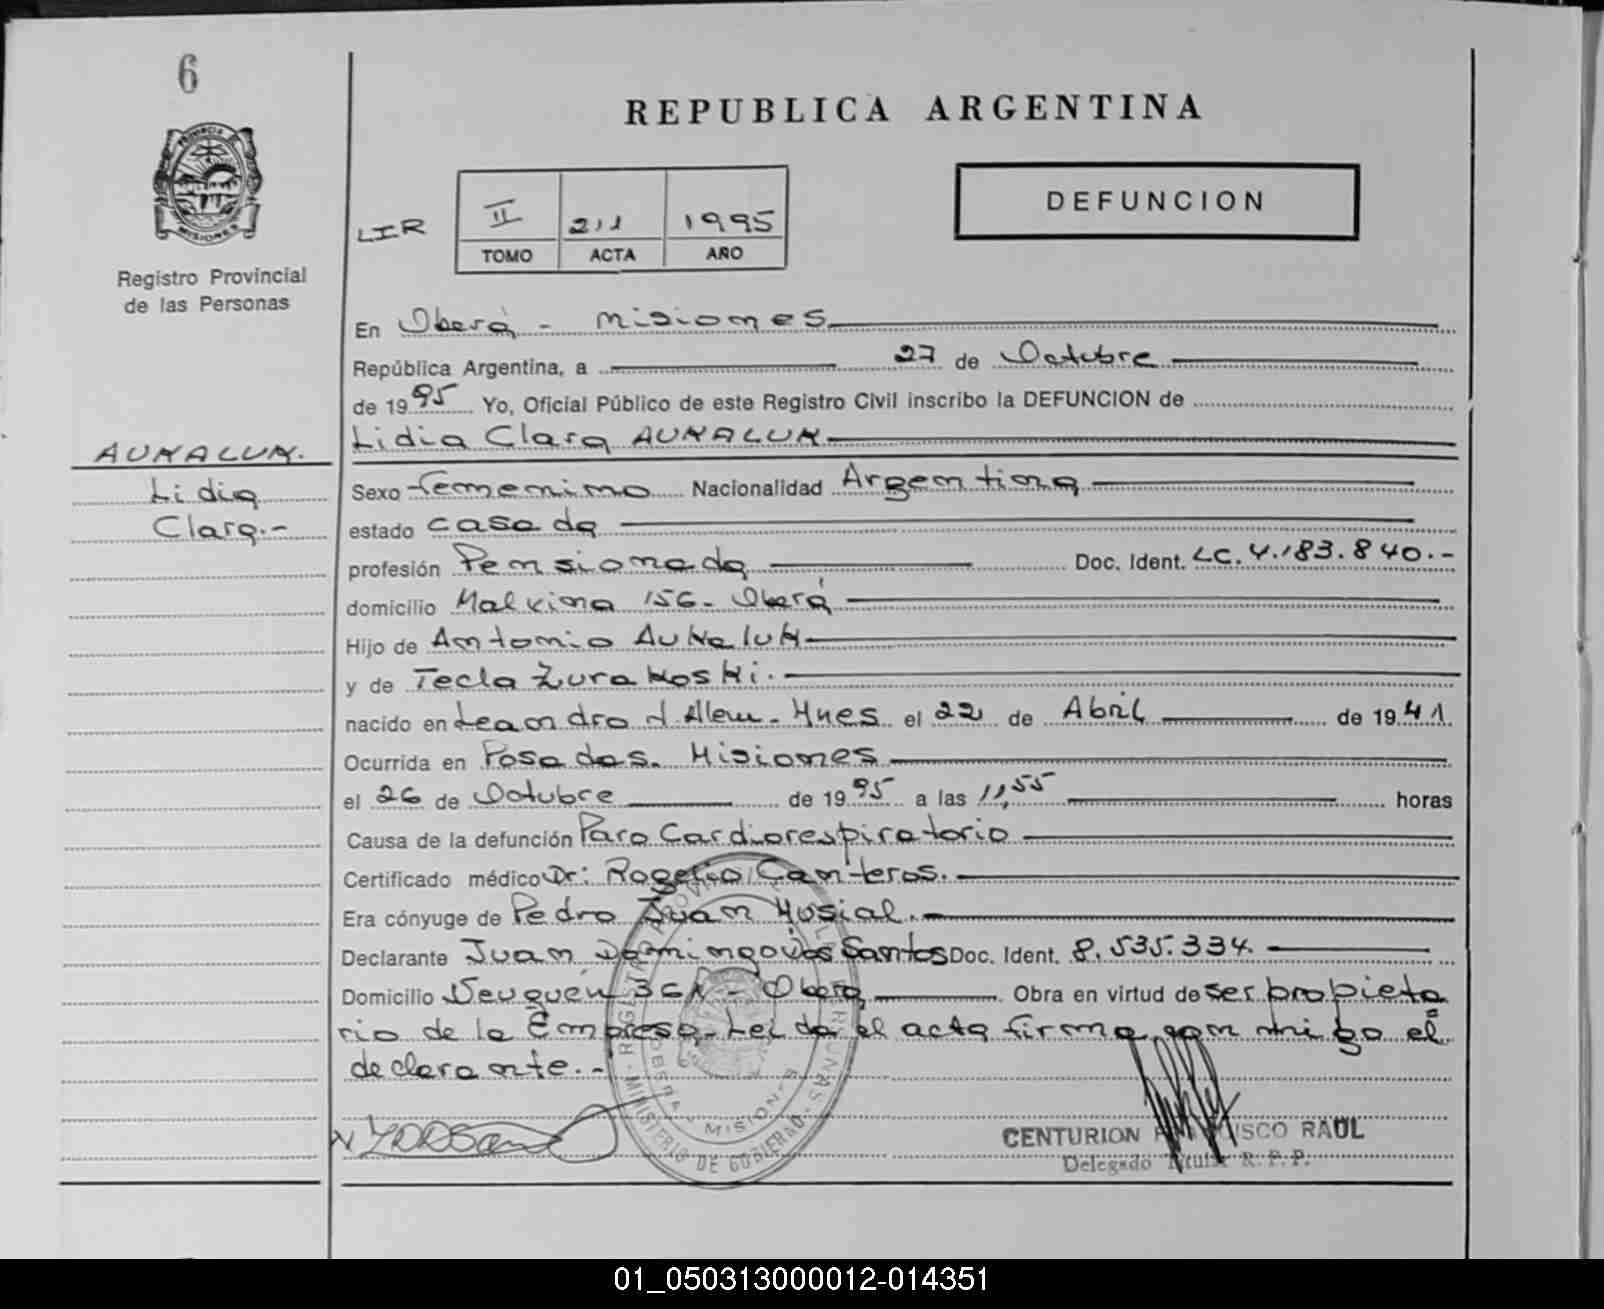 6
REPUBLICA ARGENTINA
PROVINCIA DE MISIONES
DEFUNCION
LIR
II 211 1995
TOMO ACTA AÑO
Registro Provincial
de las Personas
En Oberá - Misiones
República Argentina, a 27 de Octubre
de 1995 Yo, Oficial Público de este Registro Civil inscribo la DEFUNCION de
Lidia Clara AUKALUK
AUKALUK.
Lidia
Clara.-
Sexo femenino Nacionalidad Argentina
estado casada
profesión Pensionada Doc. Ident. LC. 4.183.840.-
domicilio Malvina 156- Oberá
Hijo de Antonio AUKALUK
y de Tecla Zurakoski.-
nacido en Leandro N Alem - Mnes el 22 de Abril de 1941
Ocurrida en Posadas. Misiones
el 26 de Octubre de 1995 a las 11,55 horas
Causa de la defunción Paro Cardiorespiratorio
Certificado médico Dr: Rogelio Canteros.-
Era cónyuge de Pedro Juan Musial.-
Declarante Juan Domingo Dos Santos Doc. Ident. 8.535.334.
Domicilio Neuquén - Oberá Obra en virtud de ser propieta
rio de la Empresa. Leida el acta firma con migo el
declarante.-
OBERA - MISIONES
MINISTERIO DE GOBIERNO
CENTURION RAUL
Delegado Titular R. P. P.
01_050313000012-014351